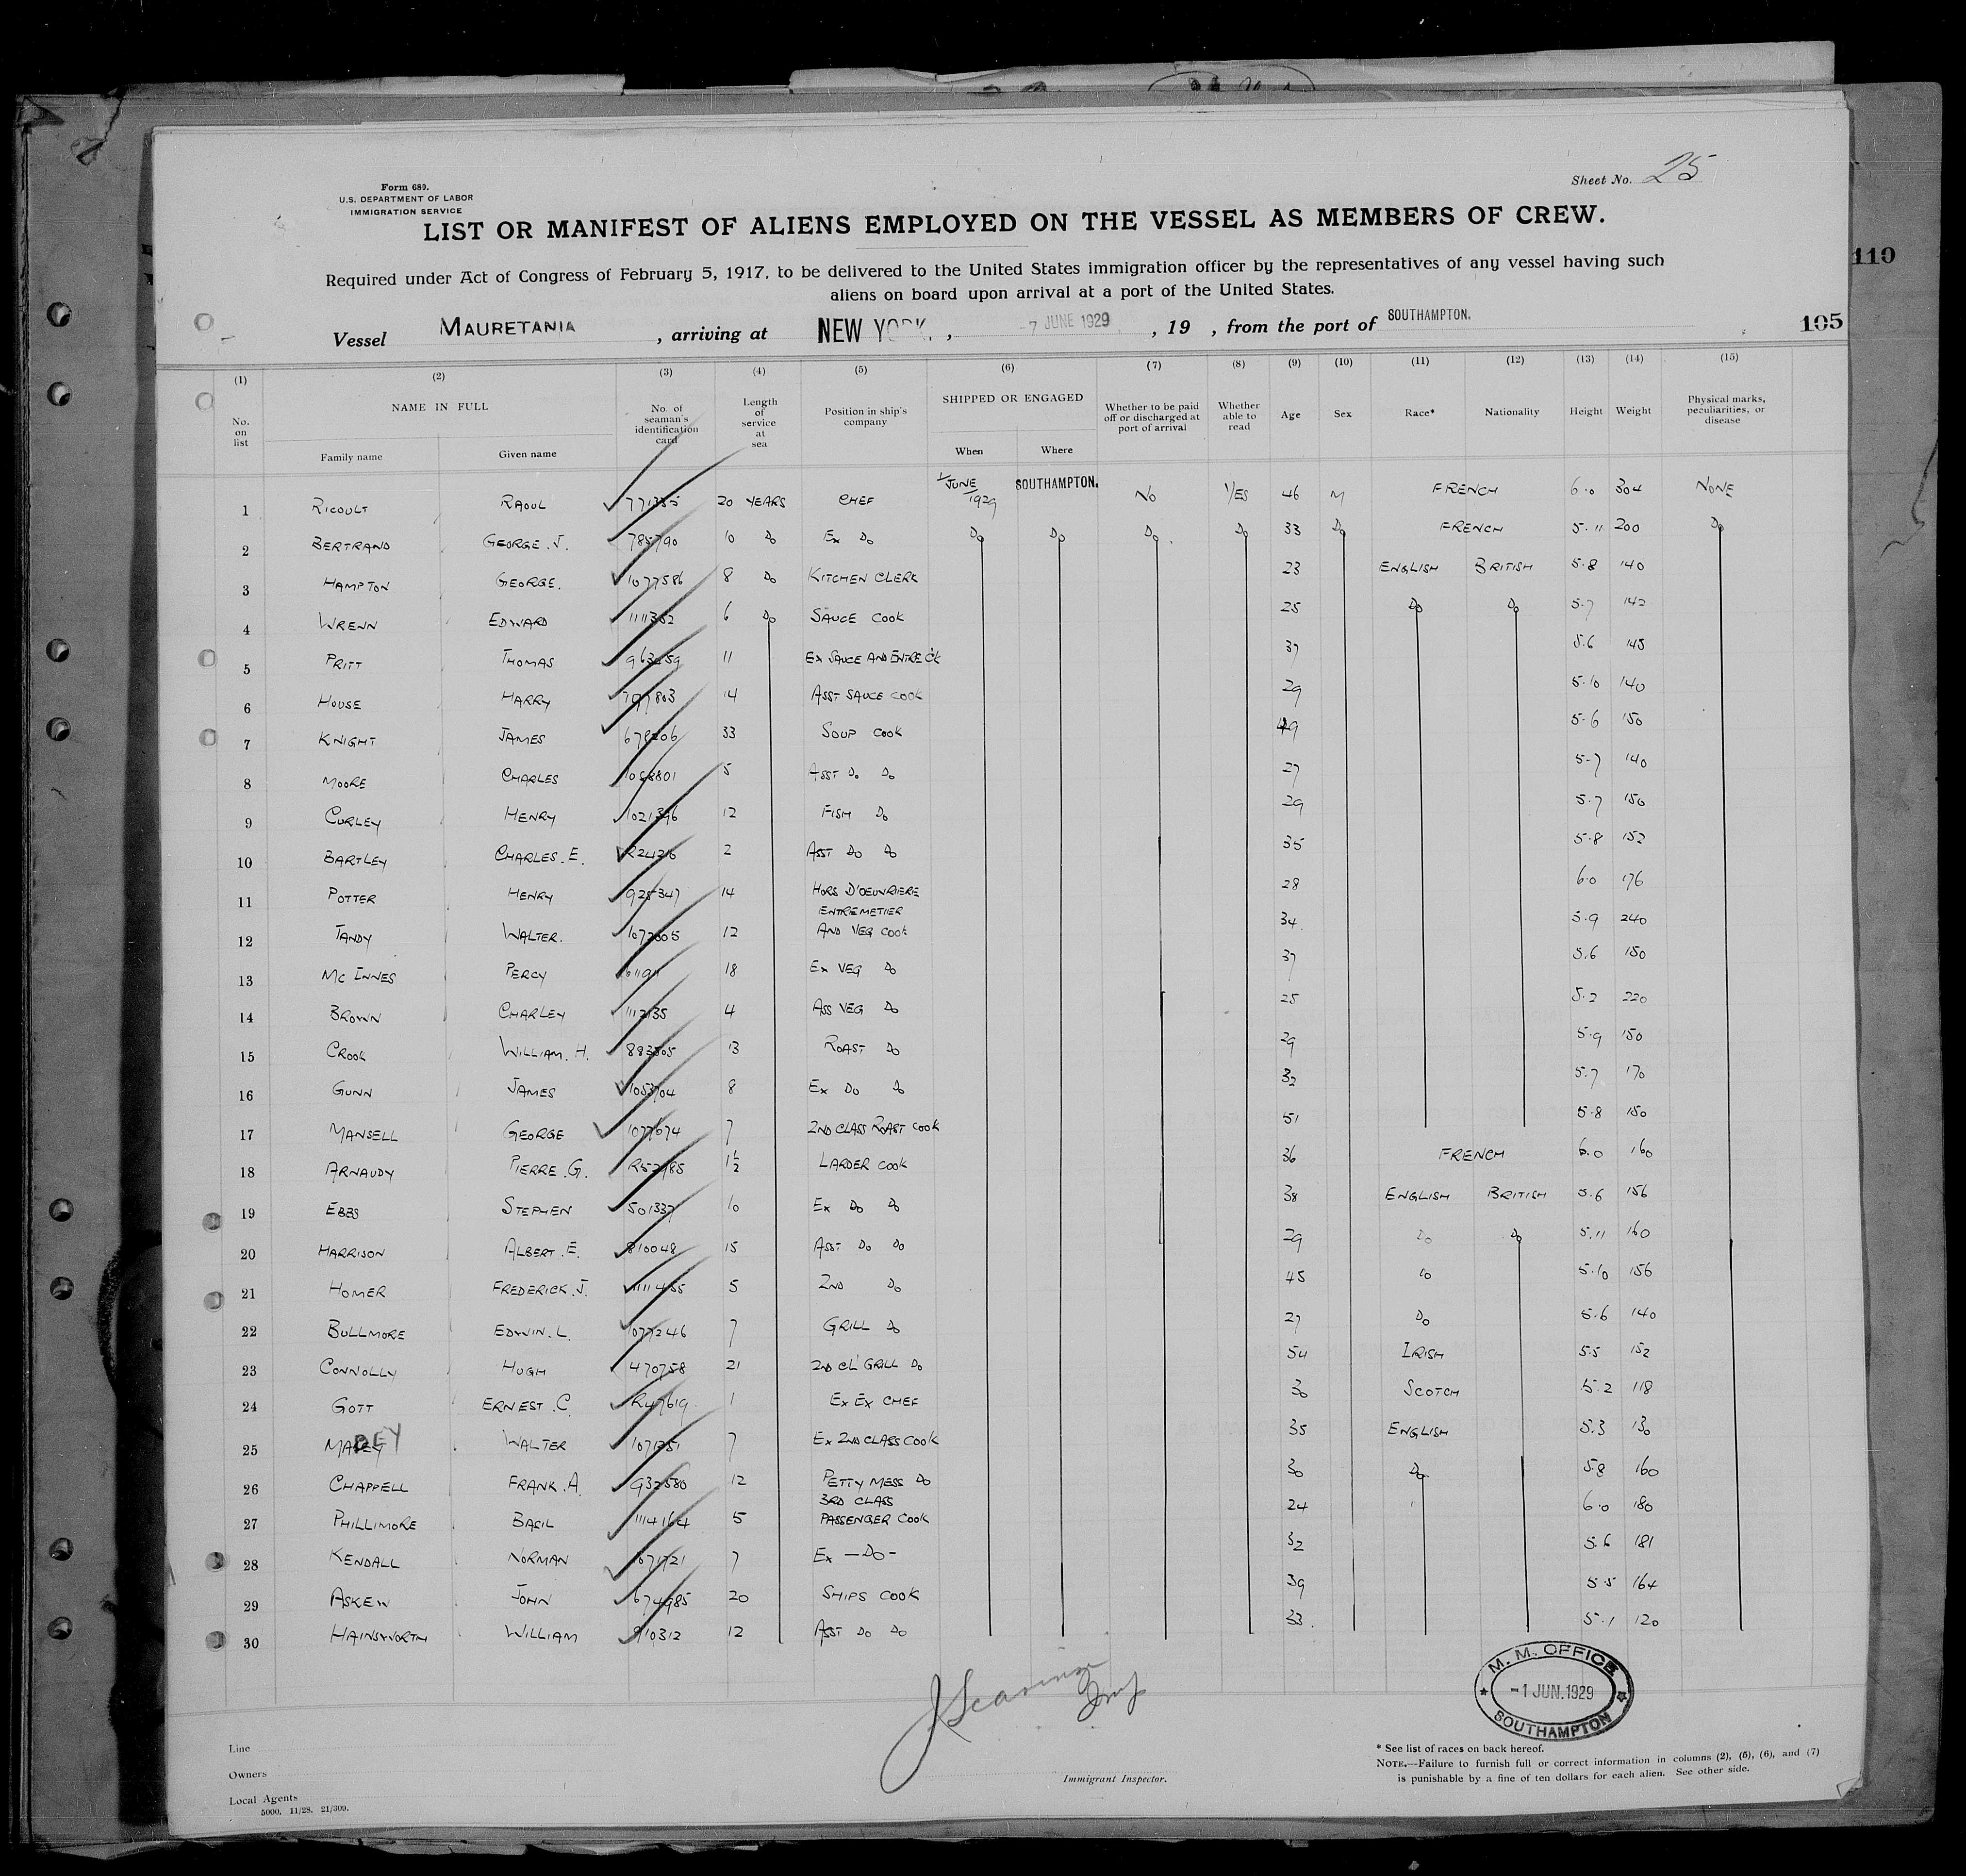 110
Sheet No. 25
Form 689.
U.S. DEPARTMENT OF LABOR
IMMIGRATION SERVICE
LIST OR MANIFEST OF ALIENS EMPLOYED ON THE VESSEL AS MEMBERS OF CREW.
Required under Act of Congress of February 5, 1917, to be delivered to the United States immigration officer by the representatives of any vessel having such
aliens on board upon arrival at a port of the United States.
Vessel MAURETANIA , arriving at NEW YORK. , -7 JUNE 1929 , 19 , from the port of SOUTHAMPTON.
105
(1) (2) (3) (4) (5) (6) (7) (8) (9) (10) (11) (12) (13) (14) (15)
No. on list NAME IN FULL Family name Given name No. of seaman's identification card Length of service at sea Position in ship's company SHIPPED OR ENGAGED When Where Whether to be paid off or discharged at port of arrival Whether able to read Age Sex Race* Nationality Height Weight Physical marks, peculiarities, or disease
1 RICOULT RAOUL 771335 20 YEARS CHEF 1/JUNE/1929 SOUTHAMPTON. NO YES 46 M FRENCH 6.0 304 NONE
2 BERTRAND GEORGE.J. 785790 10 DO EX DO DO DO DO DO 33 DO FRENCH 5.11 200 DO
3 HAMPTON GEORGE. 1077586 8 DO KITCHEN CLERK 23 ENGLISH BRITISH 5.8 140
4 WRENN EDWARD 1111352 6 DO SAUCE COOK 25 DO DO 5.7 142
5 PRITT THOMAS 11 EX SAUCE AND ENTRE CK 37 5.6 145
6 HOUSE HARRY 797803 14 ASST SAUCE COOK 29 5.10 140
7 KNIGHT JAMES 33 SOUP COOK 49 5.6 150
8 MOORE CHARLES 5 ASST DO DO 27 5.7 140
9 CURLEY HENRY 1021396 12 FISH DO 29 5.7 150
10 BARTLEY CHARLES.E. 2 ASST DO DO 35 5.8 152
11 POTTER HENRY 925347 14 HORS D'OEUVRIERE 28 6.0 176
12 TANDY WALTER. 12 ENTREMETIER AND VEG COOK 34. 5.9 240
13 MC INNES PERCY 18 EX VEG DO 37 5.6 150
14 BROWN CHARLEY 1112135 4 ASS VEG DO 25 5.2 220
15 CROOK WILLIAM.H. 883505 13 ROAST DO 29 5.9 150
16 GUNN JAMES 1053704 8 EX DO DO 32 5.7 170
17 MANSELL GEORGE 1077074 7 2ND CLASS ROAST COOK 51 5.8 150
18 ARNAUDY PIERRE.G. 1½ LARDER COOK 36 FRENCH 6.0 160
19 EBBS STEPHEN 501337 10 EX DO DO 38 ENGLISH BRITISH 5.6 156
20 HARRISON ALBERT.E. 810048 15 ASST DO DO 29 DO DO 5.11 160
21 HOMER FREDERICK.J. 1111455 5 2ND DO 45 DO 5.10 156
22 BULLMORE EDWIN.L. 1077246 7 GRILL DO 27 DO 5.6 140
23 CONNOLLY HUGH 470758 21 2ND CL' GRILL DO 54 IRISH 5.5 152
24 GOTT ERNEST.C. R47619 1 EX EX CHEF 30 SCOTCH 5.2 118
25 WALTER 1071351 7 EX 2ND CLASS COOK 35 ENGLISH 5.3 130
26 CHAPPELL FRANK.A. 932580 12 PETTY MESS DO 30 DO 5.8 160
27 PHILLIMORE BASIL 1114164 5 3RD CLASS PASSENGER COOK 24 6.0 180
28 KENDALL NORMAN 1071721 7 EX —DO- 32 5.6 181
29 ASKEW JOHN 674985 20 SHIPS COOK 39 5.5 164
30 HAINSWORTH WILLIAM 910312 12 ASST DO DO 33. 5.1 120
M. M. OFFICE
-1 JUN.1929
SOUTHAMPTON
Line
Owners
Local Agents
5000. 11/28. 21/309.
Immigrant Inspector.
* See list of races on back hereof.
NOTE.—Failure to furnish full or correct information in columns (2), (5), (6), and (7)
is punishable by a fine of ten dollars for each alien. See other side.